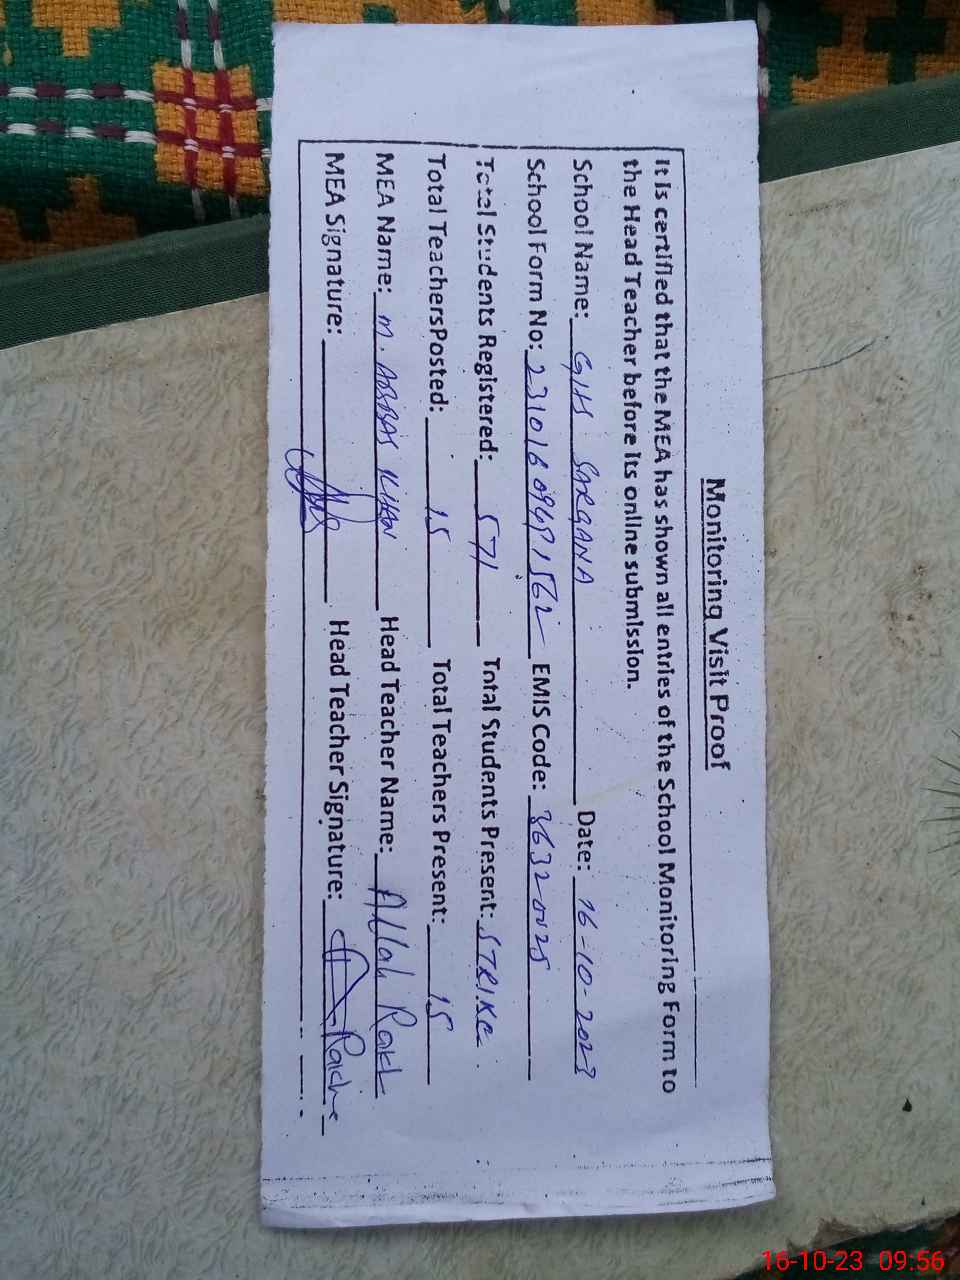 Monitoring Visit Proof
It is certified that the MEA has shown all entries of the School Monitoring Form to
the Head Teacher before its online submission.
School Name: GHS SARGANA Date: 16-10-2023
School Form No: 23101609691562 EMIS Code: 36320025
Total Students Registered: 571 Total Students Present: STRIKE.
Total TeachersPosted: 15 Total Teachers Present: 15
MEA Name: M. ABBAS KHAN Head Teacher Name: Allah Rakh
MEA Signature: Head Teacher Signature:
16-10-23 09:56